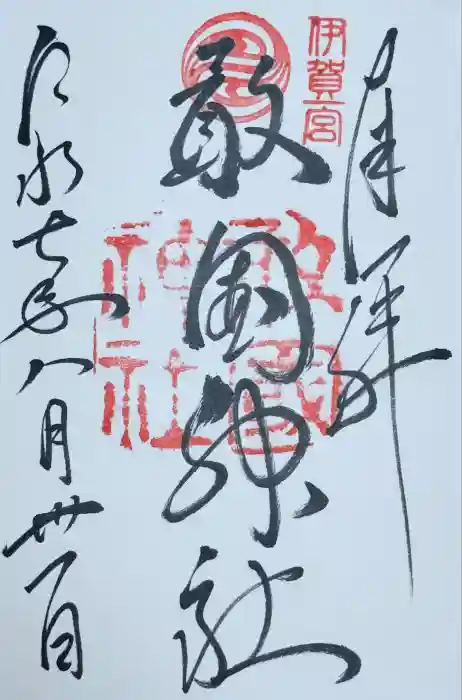 奉拝
伊賀一宮
敢國神社
敢國神社
令和七年八月卅一日